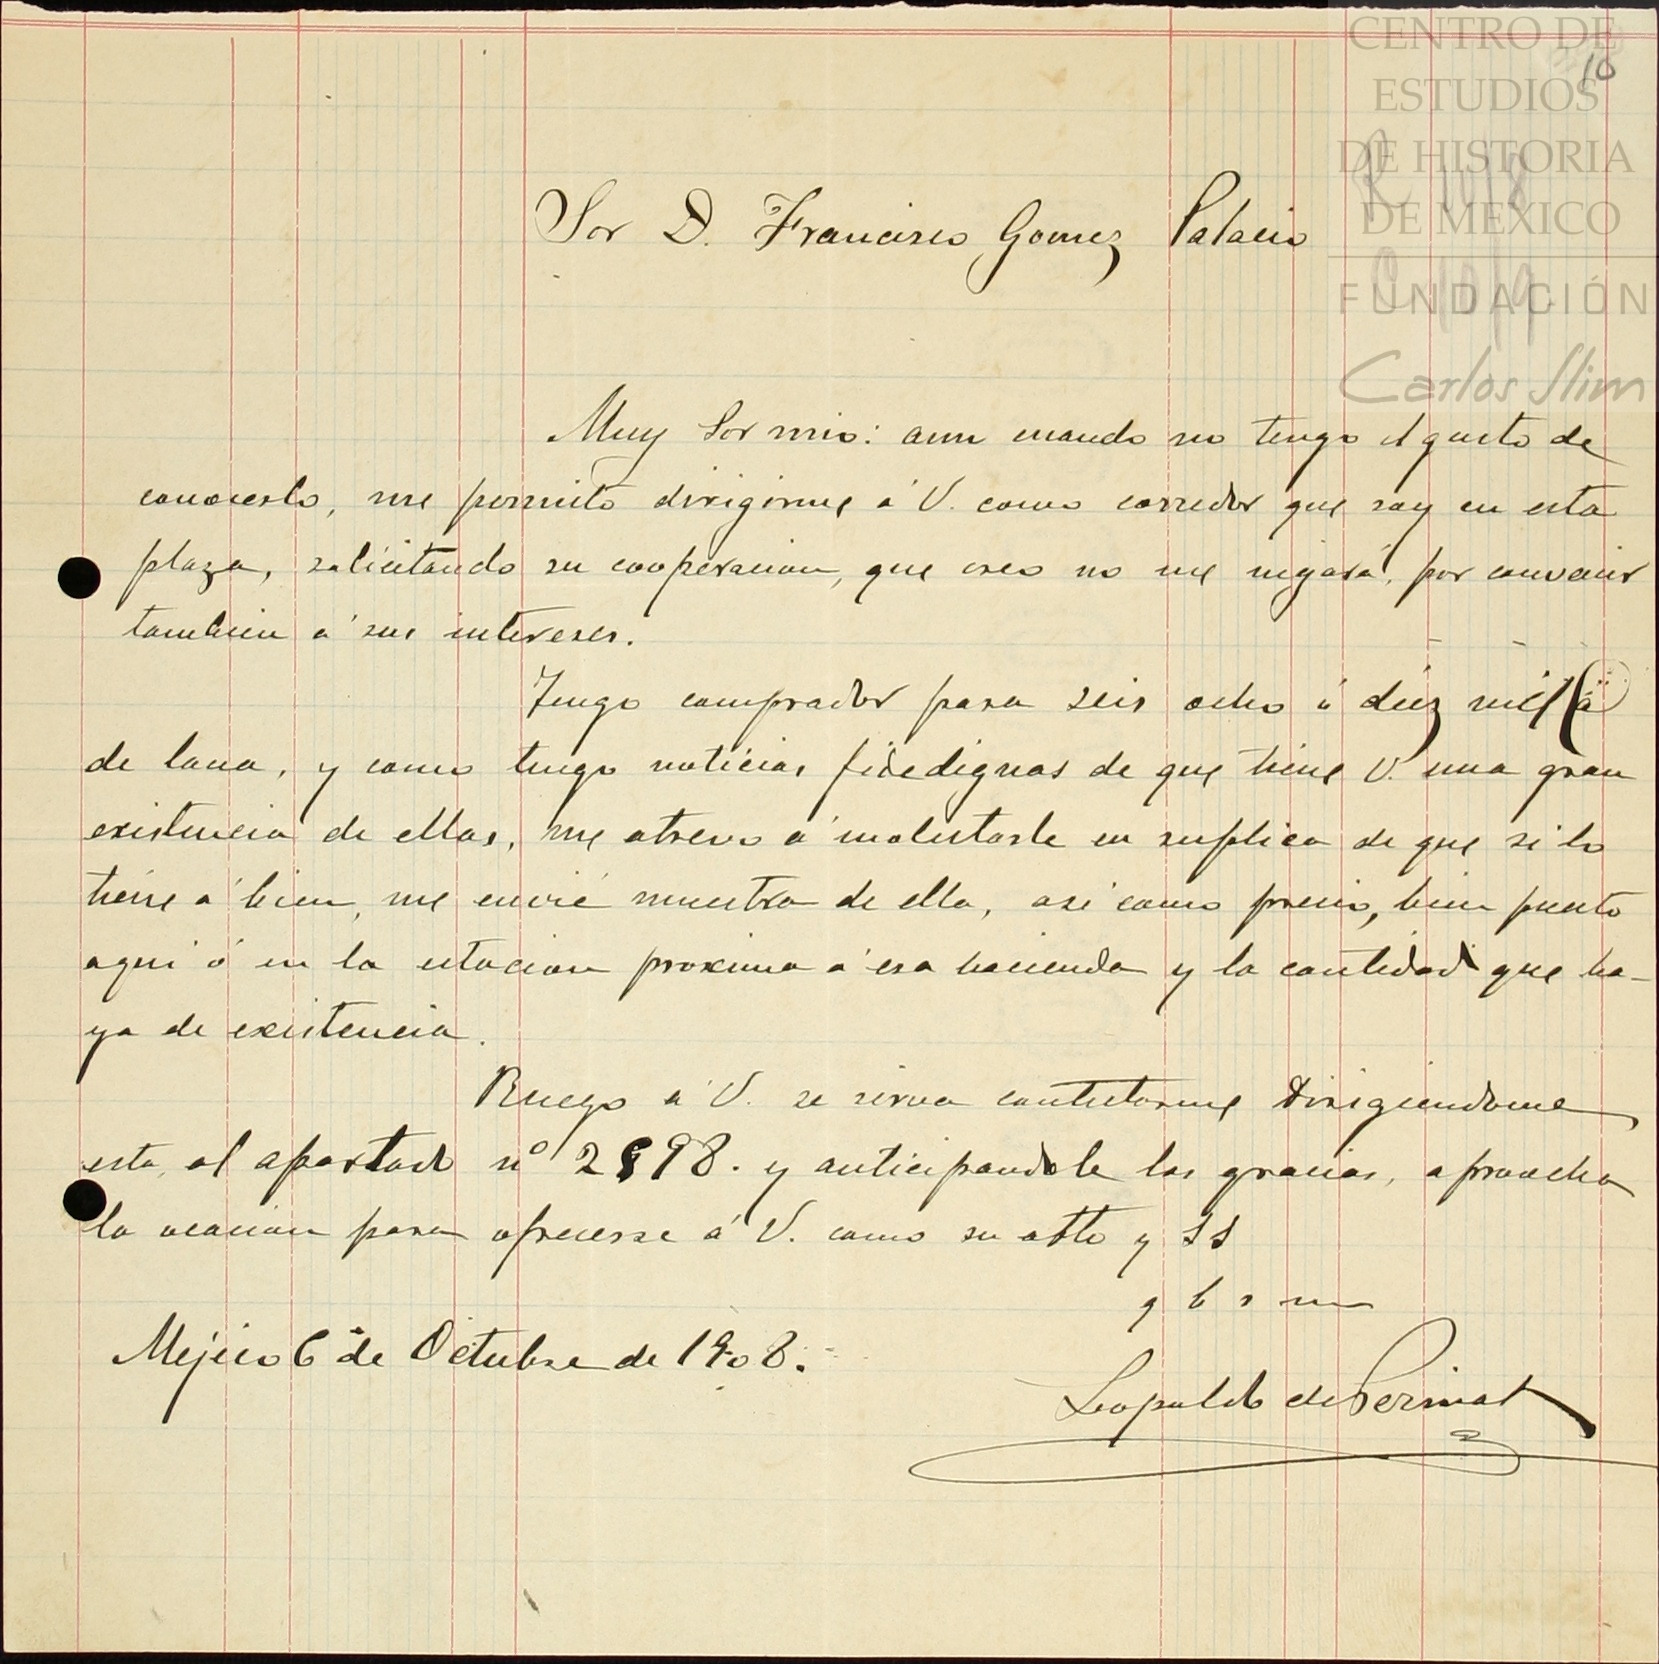 CENTRO DE
ESTUDIOS
DE HISTORIA
DE MEXICO
FUNDACIÓN
Carlos Slim
10
Sor D. Francisco Gomez Palacio
Muy Sor mio: aun cuando no tengo el gusto de
conocerlo, me permito dirigirme á V. como corredor que soy en esta
plaza, solicitando su cooperacion, que creo no me negará, por convenir
tambien á sus intereses.
Tengo comprador para seis ocho á diez mil
de lana, y como tengo noticias fidedignas de que tiene V. una gran
existencia de ellas, me atrevo á molestarle en suplica de que si lo
tiene á bien, me envié muestra de ella, asi como precio, bien puesto
aqui ó en la estacion proxima á esa hacienda y la cantidad que ha-
ya de existencia.
Ruego á V. se sirva contestarme dirigiendome
esta, al apartado nº 2898. y anticipandole las gracias, aprovecha
la ocacion para ofrecerse á V. como su atto y SS
q b s m
Mejico 6 de Octubre de 1908.
Leopoldo de Perinat